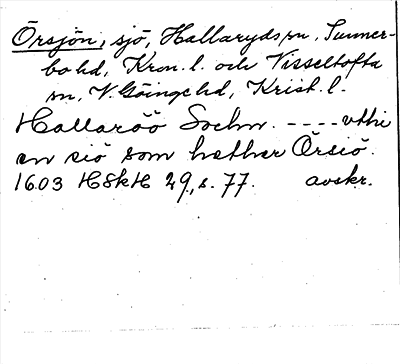 Örsjön, sjö, Hallaryds sn. Sunner-
bo hd, Kron. l. och Visseltofta
sn, V. Göinge hd, Krist. l.
Hallaröö Sochn. ---- vthi
en siö som hether Örsiö.
1603 HSkH 29, s. 77. avskr.